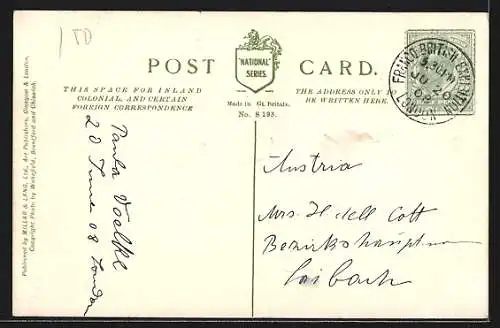 1 TD
POST CARD.
"NATIONAL"
SERIES.
THIS SPACE FOR INLAND
COLONIAL, AND CERTAIN
FOREIGN CORRESPONDENCE
Made in Gt. Britain.
No. S 193.
THE ADDRESS ONLY TO
BE WRITTEN HERE.
FRANCO-BRITISH
5.30 PM
JU 20
08
LONDON
Published by MILLAR & LANG, Ltd., Art Publishers, Glasgow & London.
Copyright Photo by Wakefield, Brentford and Chiswick.
Paula Voelkl
20 June 08 London
Austria
Mrs. H dell Cott
Bezirkshauptm
Laibach